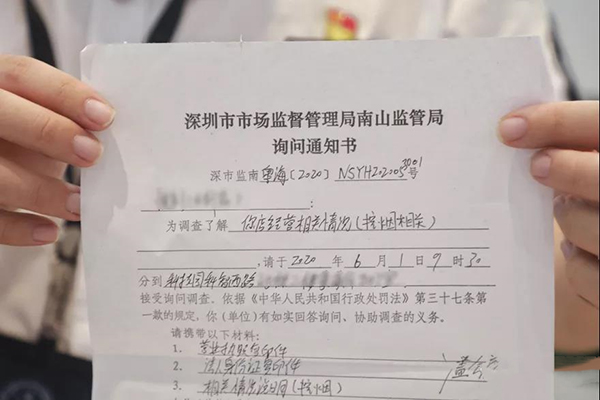 深圳市市场监督管理局南山监管局
询问通知书
深市监南粤海〔2020〕NSYH2020053001号
:
为调查了解 你店经营相关情况(控烟相关)
,请于2020年6月1日9时30
分到 科技园科智西路
接受询问调查。依据《中华人民共和国行政处罚法》第三十七条第
一款的规定,你(单位)有如实回答询问、协助调查的义务。
请携带以下材料:
1. 营业执照复印件
2. 法人身份证复印件
3. 相关情况说明(控烟)